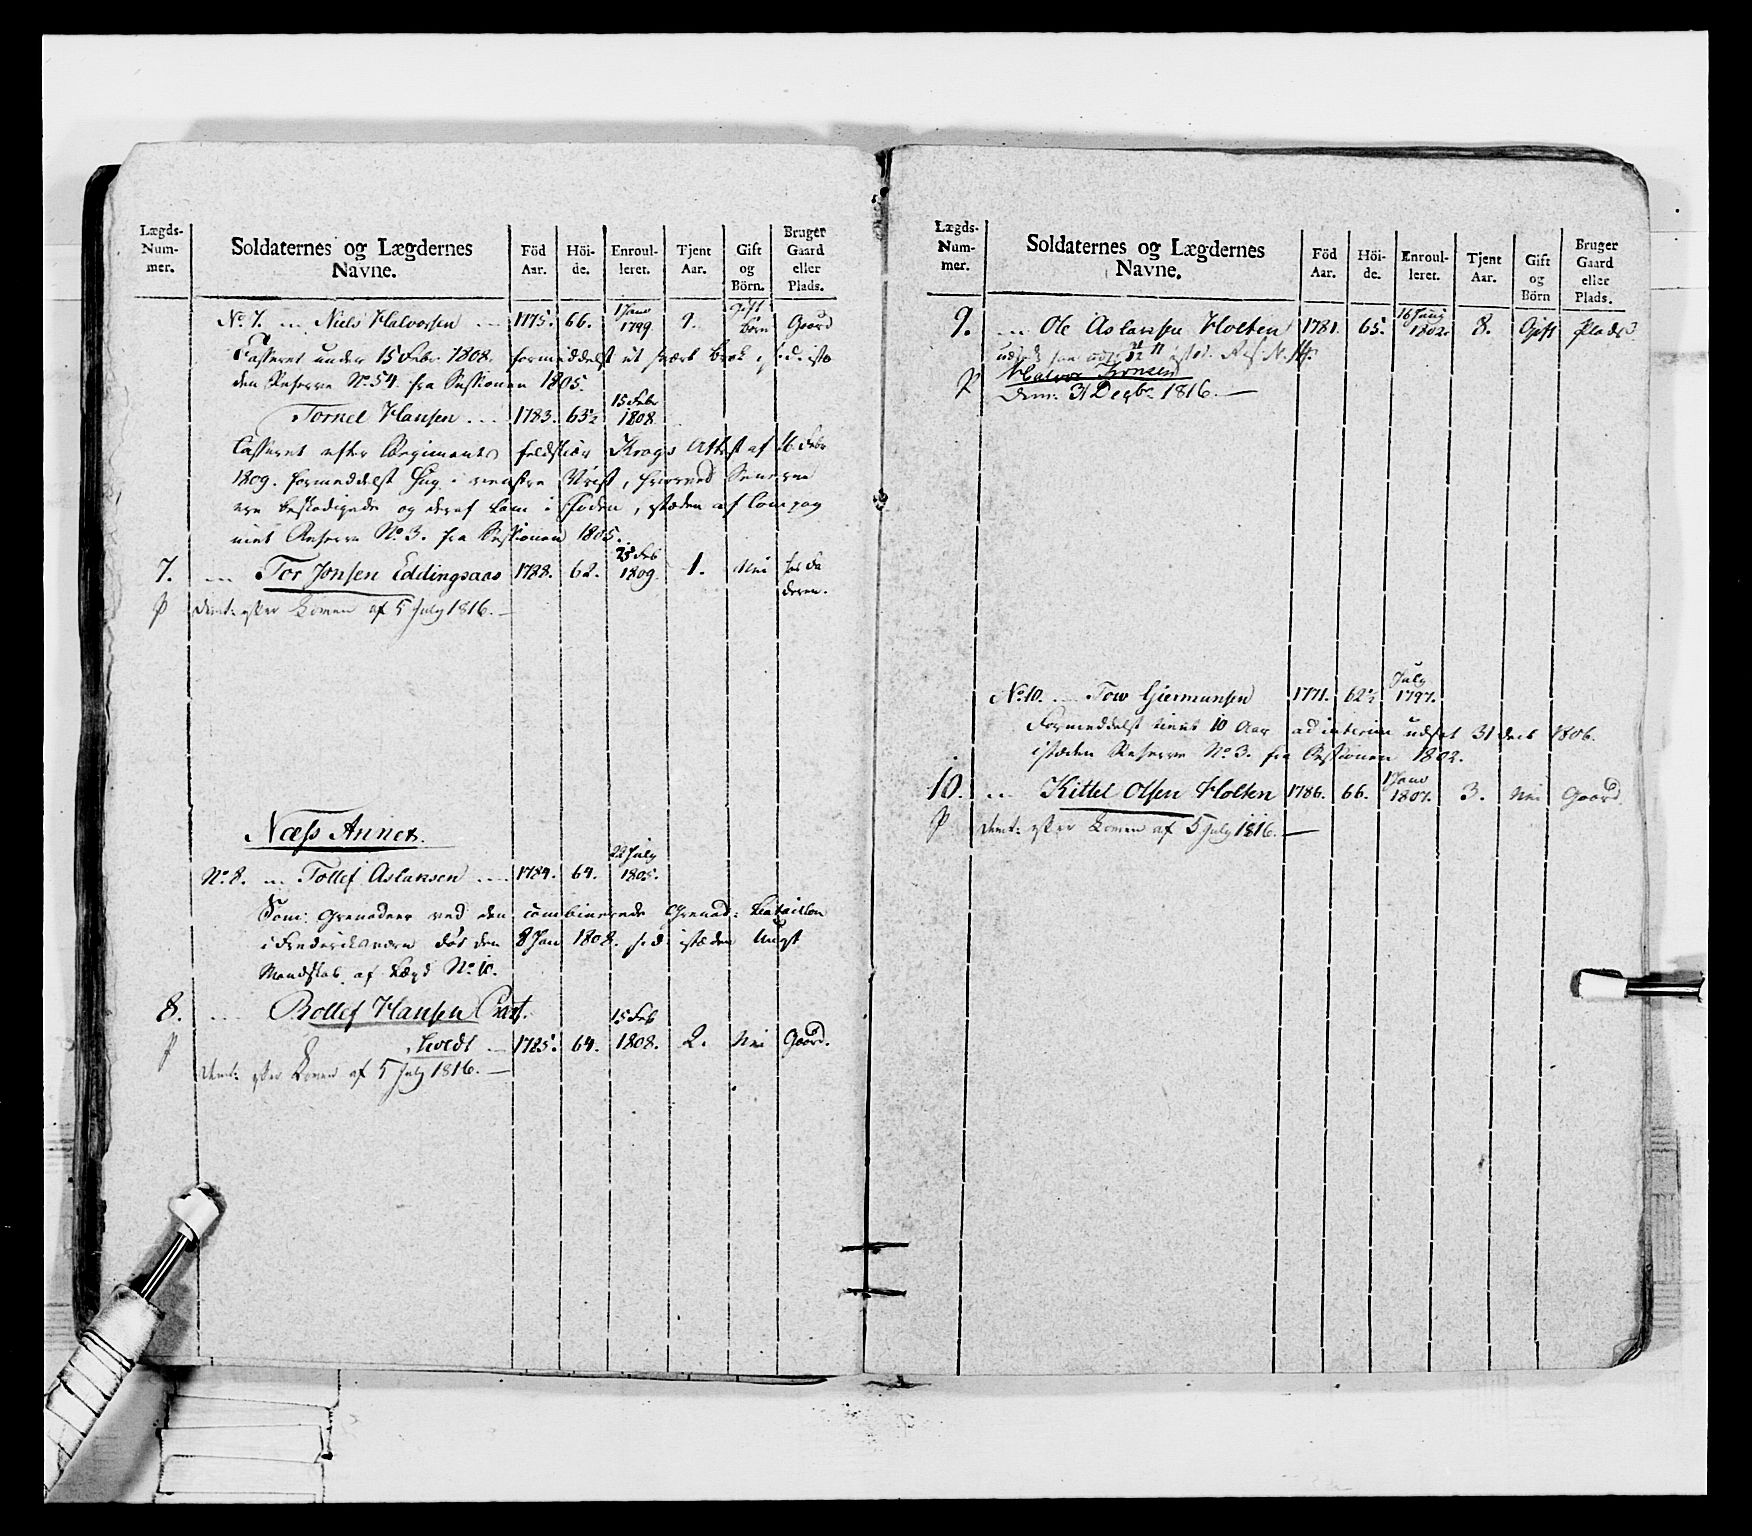 Lægds-
Num-
mer.
Soldaternes og Lægdernes
Navne.
Föd
Aar.
Höi-
de.
Enroul-
leret.
Tjent
Aar.
Gift
og
Börn.
Bruger
Gaard
eller
Plads.
No. 7. Niels Halvorsen 1775. 66. 1 Janv 1799 9. Gift Börn Gaard
Casseret under 15 Febr. 1808. formeddelst et svært brok, s. d. istæ
den Reserve No. 54 fra Sessionen 1805.
Tornel Hansen 1783. 63½ 15 Febr 1808
Casseret efter Regiments feldskiær Krogs Attest af 16 Febr
1809. formeddelst hug i venstre Vrist, hvorved Senerne
ere beskadigede og deraf lam i Foden, istæden af Compag
niet Reserve No. 3. fra Sessionen 1805.
7. Tor Jonsen Eddingsaas 1788. 62. 25 Feb 1809. 1. Nei
deren.
Dimt: efter Comen af 5 July 1816.
Næss Annex.
No. 8. Tollef Aslaksen 1784. 64. 22 July 1805.
Som Grenadeer ved den combinerede Grenad: Bataillon
i Frederiksværn död den 8 Jan 1808. s. d. istæden Ungt
Mandskab af Lægd No. 10.
8. Rollef Hansen
Tvedt 1785. 64. 15 Feb 1808. 2. Nei Gaard.
Dimt: efter Comen af 5 July 1816.
Lægds-
Num-
mer.
Soldaternes og Lægdernes
Navne.
Föd
Aar.
Höi-
de.
Enroul-
leret.
Tjent
Aar.
Gift
og
Börn
Bruger
Gaard
eller
Plads.
9. Ole Aslaksen Holten 1781. 65. 1802. 8. Gift Plads
Halvor
Dim: 31 Decbr 1816.
No. 10. Tow Giermunsen 1771. 62½ July 1797.
Formeddelst tient 10 Aar ad interim udsat 31 Decb 1806.
istæden Reserve No. 3. fra Sessionen 1802.
10. Kittel Olsen Holten 1786. 66. 1 Janv 1807. 3. Nei Gaard.
Dimt: efter Comen af 5 July 1816.